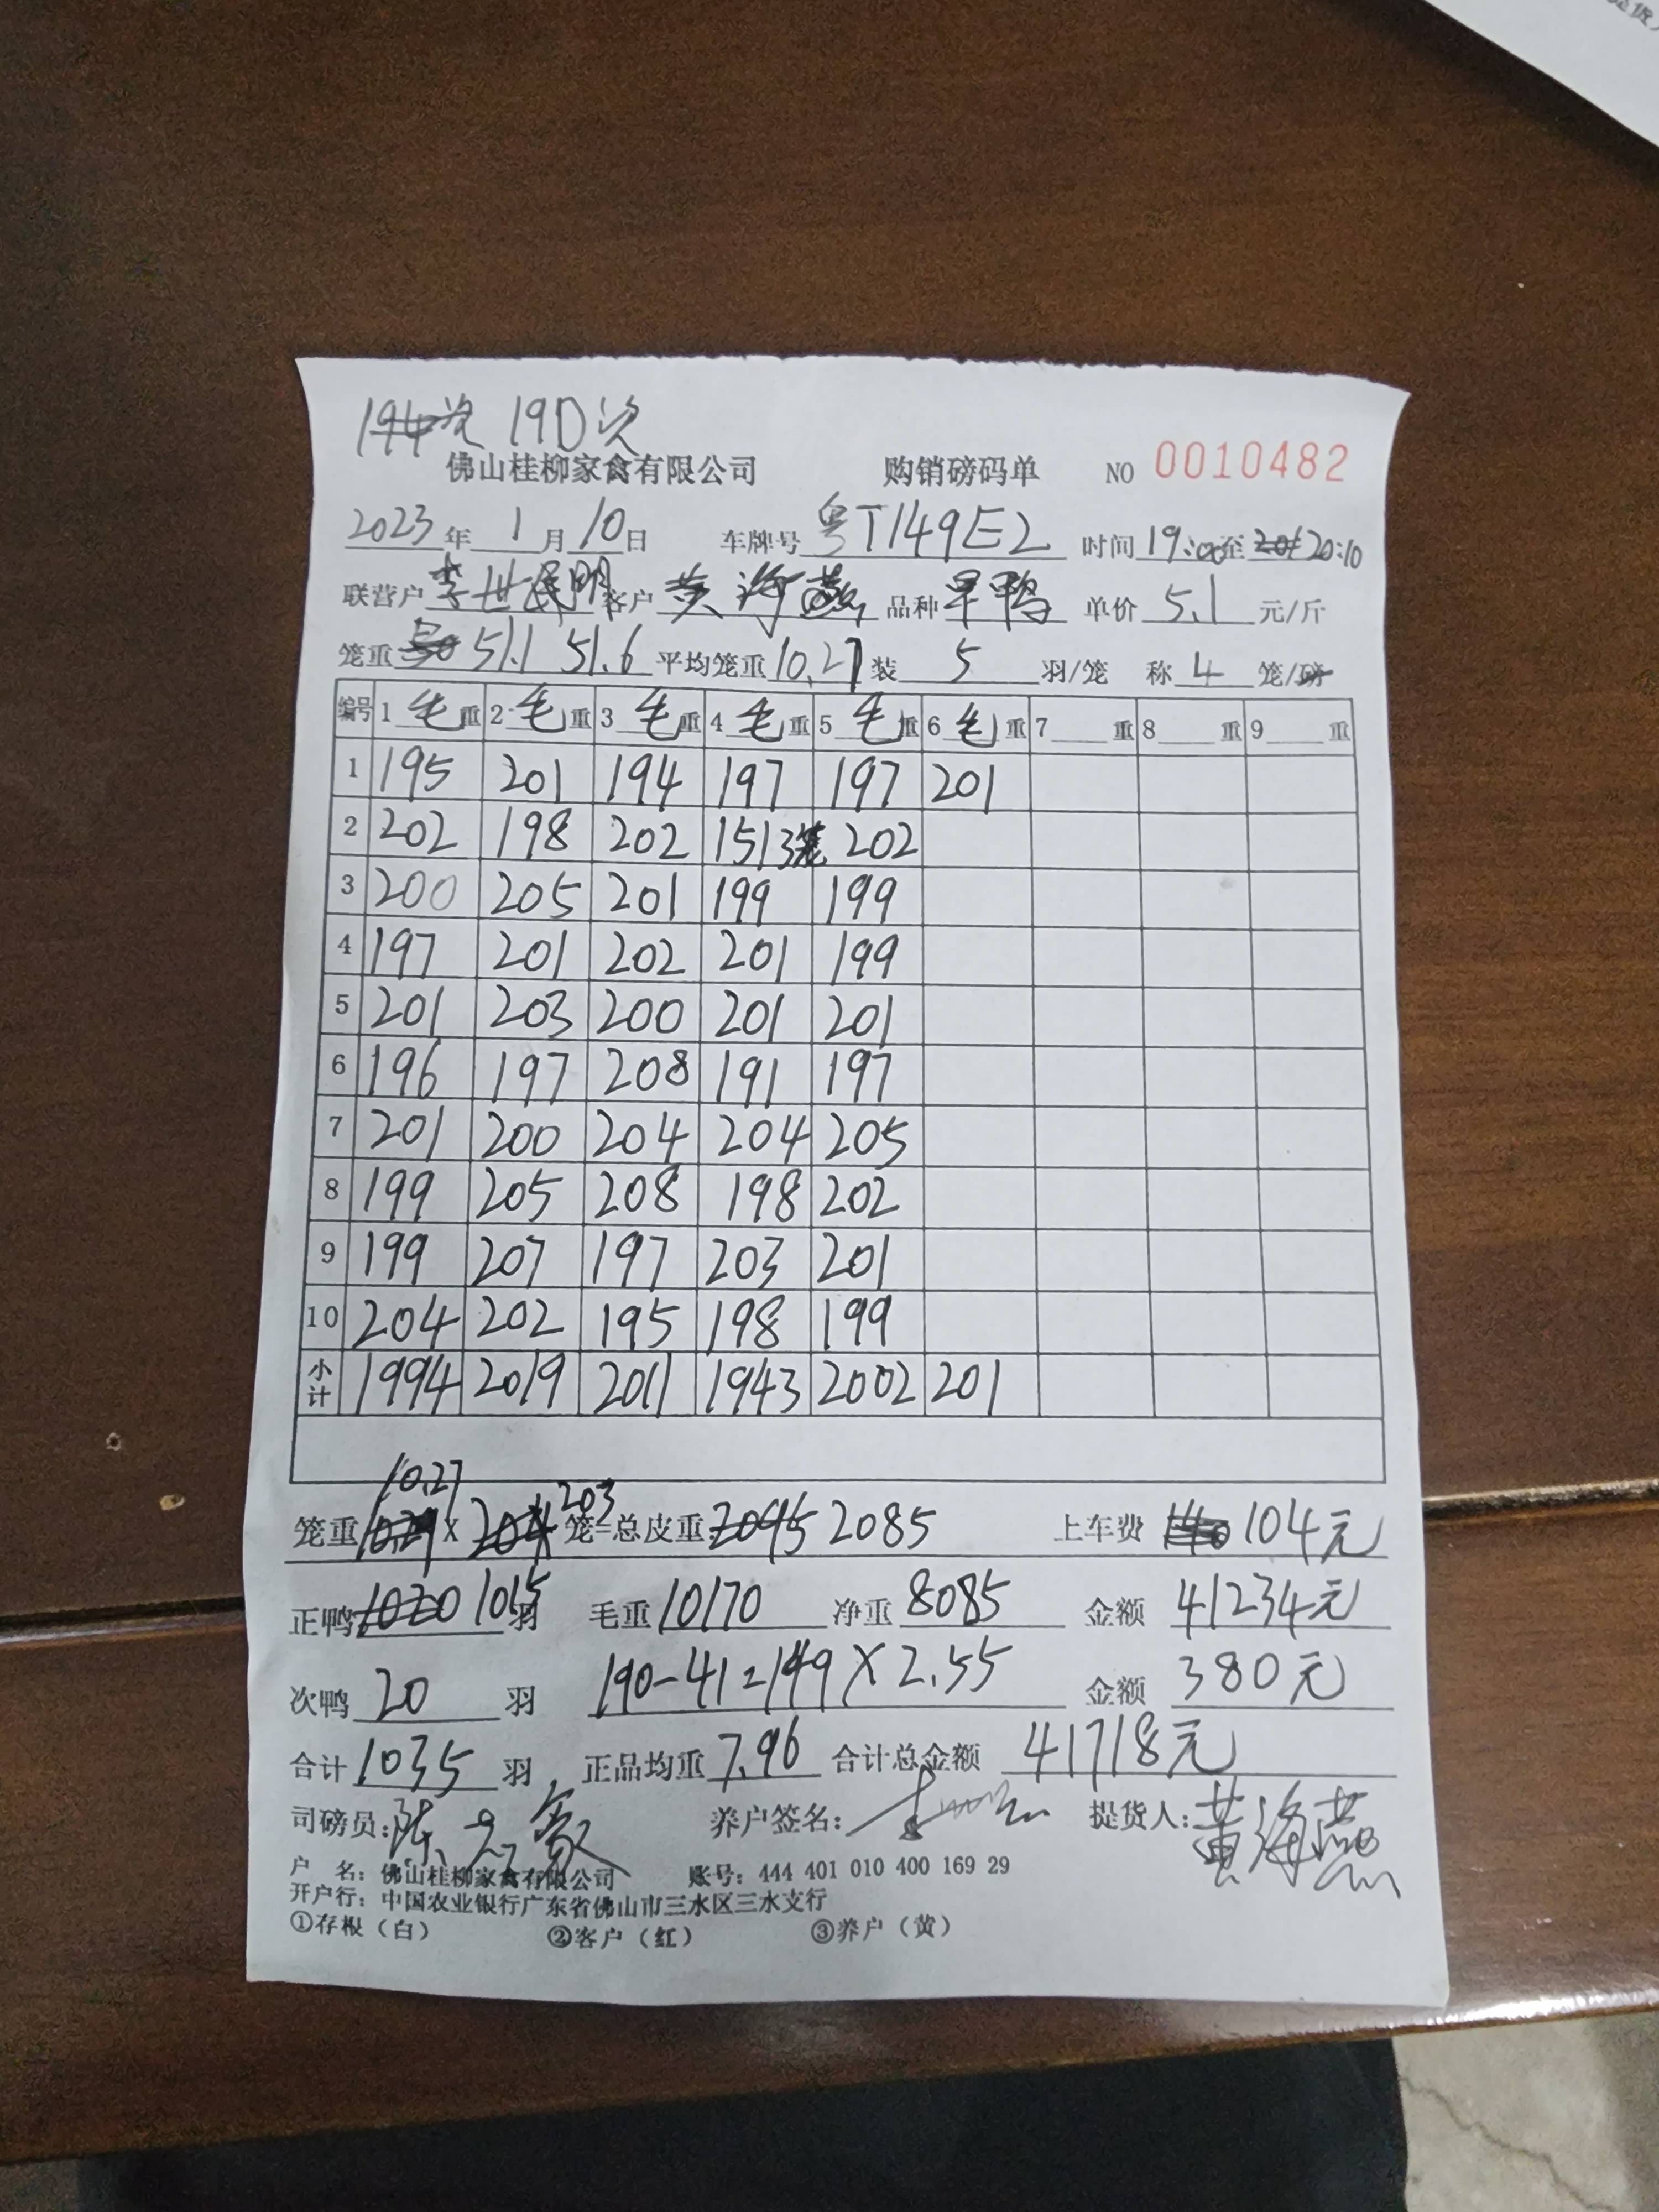 190次
佛山桂柳家禽有限公司 购销磅码单 NO 0010482
2023年1月10日 车牌号 粤T149E2 时间 19:00至20:10
联营户 李世明 客户 黄海燕 品种 旱鸭 单价 5.1 元/斤
笼重 51.1 51.6 平均笼重 10.27 装 5 羽/笼 称 4 笼/磅
编号 1 毛 重 2 毛 重 3 毛 重 4 毛 重 5 毛 重 6 毛 重 7 重 8 重 9 重
1 195 201 194 197 197 201
2 202 198 202 151 3笼 202
3 200 205 201 199 199
4 197 201 202 201 199
5 201 203 200 201 201
6 196 197 208 191 197
7 201 200 204 204 205
8 199 205 208 198 202
9 199 207 197 203 201
10 204 202 195 198 199
小计 1994 2019 2011 1943 2002 201
笼重 10.27 X 203 笼=总皮重 2085 上车费 104元
正鸭 1015 羽 毛重 10170 净重 8085 金额 41234元
次鸭 20 羽 190-41=149X2.55 金额 380元
合计 1035 羽 正品均重 7.96 合计总金额 41718元
司磅员: 养户签名: 提货人: 黄海燕
户 名: 佛山桂柳家禽有限公司 账号: 444 401 010 400 169 29
开户行: 中国农业银行广东省佛山市三水区三水支行
①存根（白） ②客户（红） ③养户（黄）